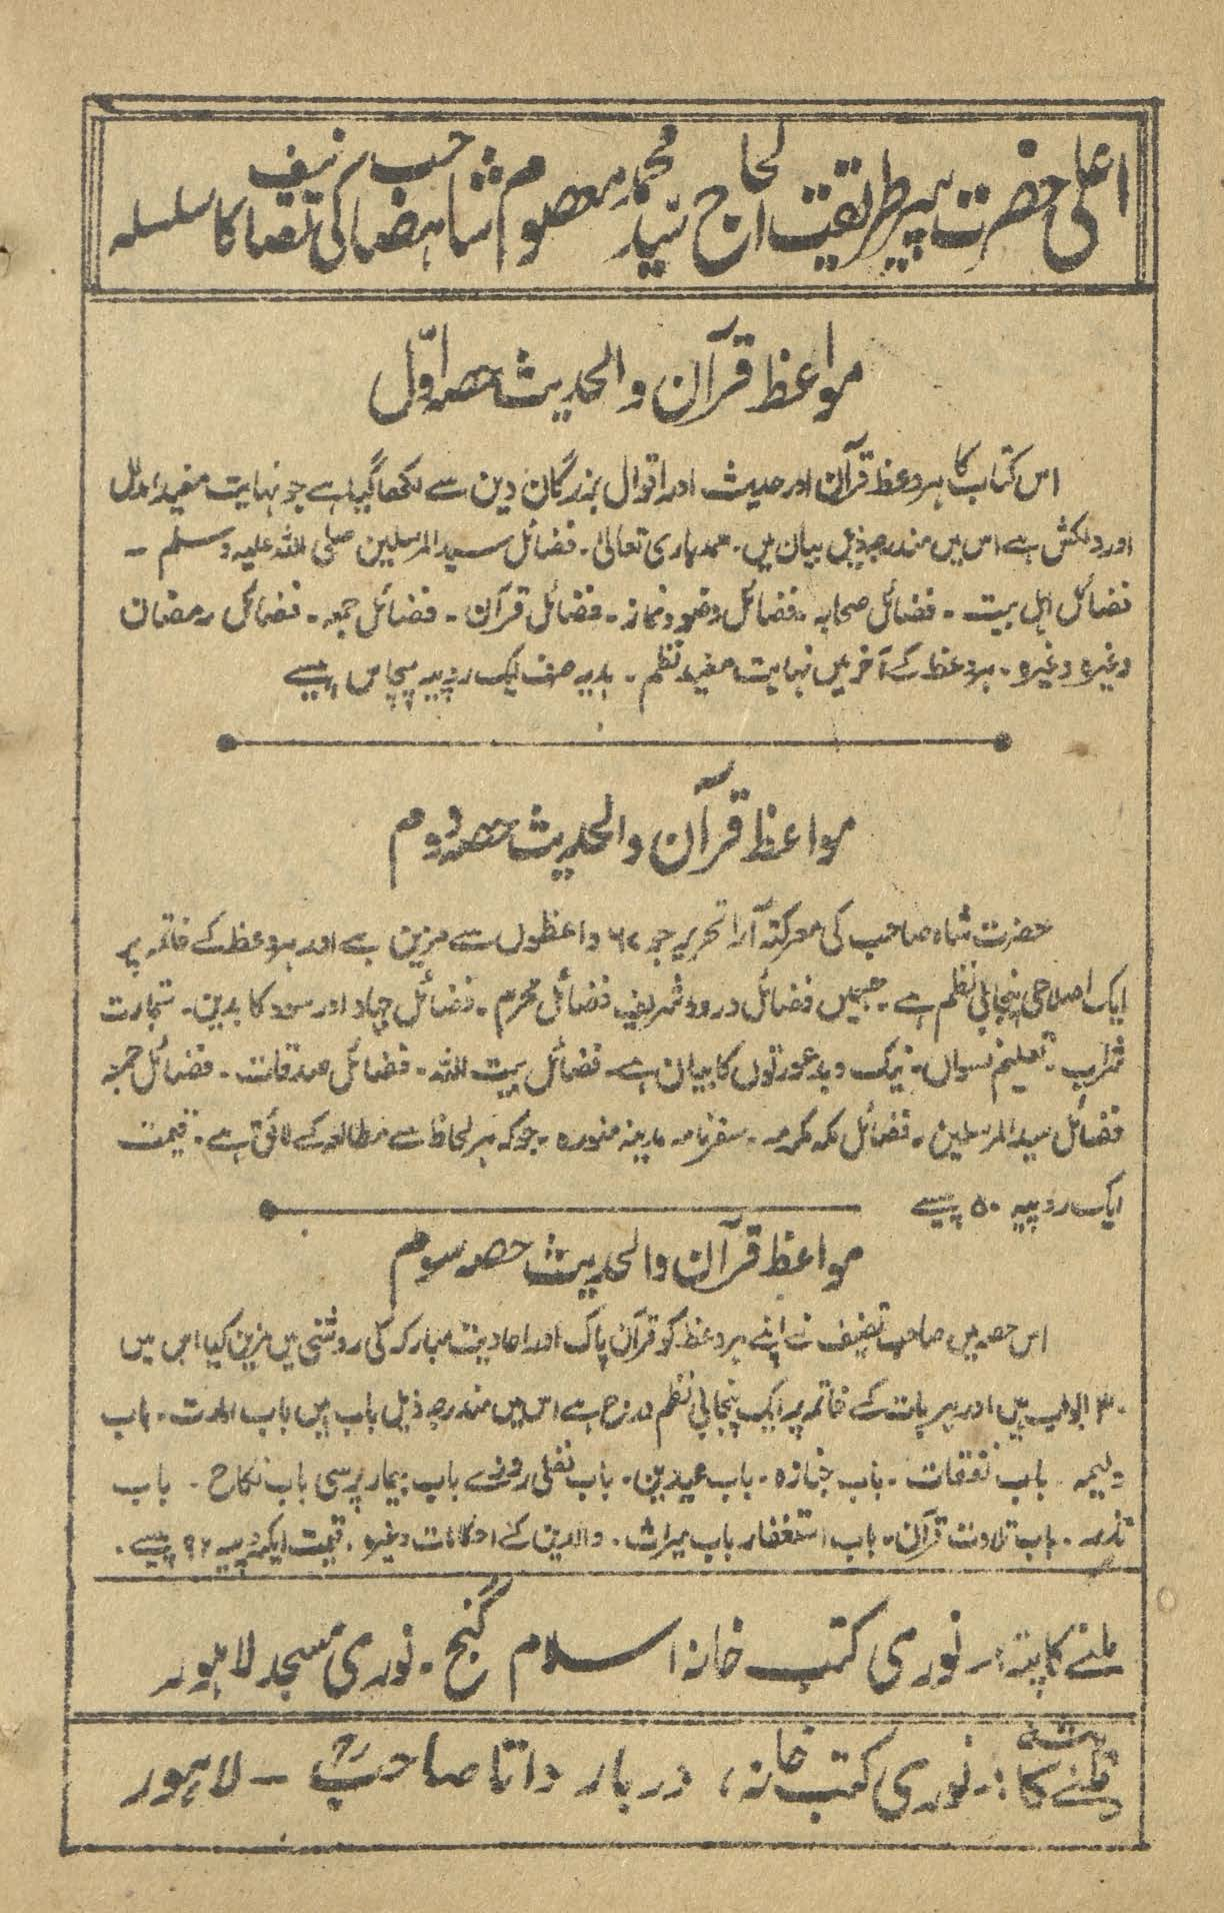 اعلیٰ حضرت پیر طریقت الحاج سید محمد معصوم شاہ صاحب کی تصانیف کا سلسلہ
مواعظ قرآن والحدیث حصہ اوّل
اس کتاب کا ہر وعظ قرآن اور حدیث اور اقوال بزرگان دین سے لکھا گیا ہے جو نہایت مفید مدلل
اور دلکش ہے اس میں مندرجہ ذیل بیان ہیں۔ حمد باری تعالیٰ۔ فضائل سید المرسلین صلی اللہ علیہ وسلم ۔
فضائل اہل بیت ۔ فضائل صحابہ ۔ فضائل وضو و نماز ۔ فضائل قرآن ۔ فضائل جمعہ ۔ فضائل رمضان
وغیرہ وغیرہ ۔ ہر وعظ کے آخر میں نہایت مفید نظم ۔ ہدیہ صرف ایک روپیہ پچاس پیسے
مواعظ قرآن والحدیث حصہ دوم
حضرت شاہ صاحب کی معرکۃ آرا تحریر جو ۶۲ واعظوں سے مزین ہے اور ہر وعظ کے خاتمہ پر
ایک اصلاحی پنجابی نظم ہے۔ جسمیں فضائل درود شریف فضائل محرم ۔ فضائل جہاد اور سود کا بدین ۔ تجارت
شراب ۔ تعلیم نسواں ۔ نیک و بد عورتوں کا بیان ہے۔ فضائل بیت اللہ ۔ فضائل صدقات ۔ فضائل حج
فضائل سید المرسلین ۔ فضائل مکہ مکرمہ ۔ سفرنامہ مدینہ منورہ ۔ جو کہ ہر لحاظ سے مطالعہ کے لائق ہے ۔ قیمت
ایک روپیہ ۵۰ پیسے
مواعظ قرآن والحدیث حصہ سوم
اس حصہ میں صاحب تصنیف نے اپنے ہر وعظ کو قرآن پاک اور احادیث مبارکہ کی روشنی میں مزین کیا اس میں
۳۰ ابواب ہیں اور ہر باب کے خاتمہ پر ایک پنجابی نظم درج ہے اس میں مندرجہ ذیل باب ہیں باب امارت ۔ باب
ولیمہ ۔ باب نفقات ۔ باب جنازہ ۔ باب عیدین ۔ باب نفلی روزے باب بیمار پرسی باب نکاح ۔ باب
نذر ۔ باب تلاوت قرآن ۔ باب استغفار باب میراث ۔ والدین کے احکامات وغیرہ ۔ قیمت ایک روپیہ ۹۲ پیسے ۔
ملنے کا پتہ :۔ نوری کتب خانہ اسلام گنج ۔ نوری مسجد لاہور
ملنے کا پتہ :۔ نوری کتب خانہ ، دربار داتا صاحبؒ ۔ لاہور